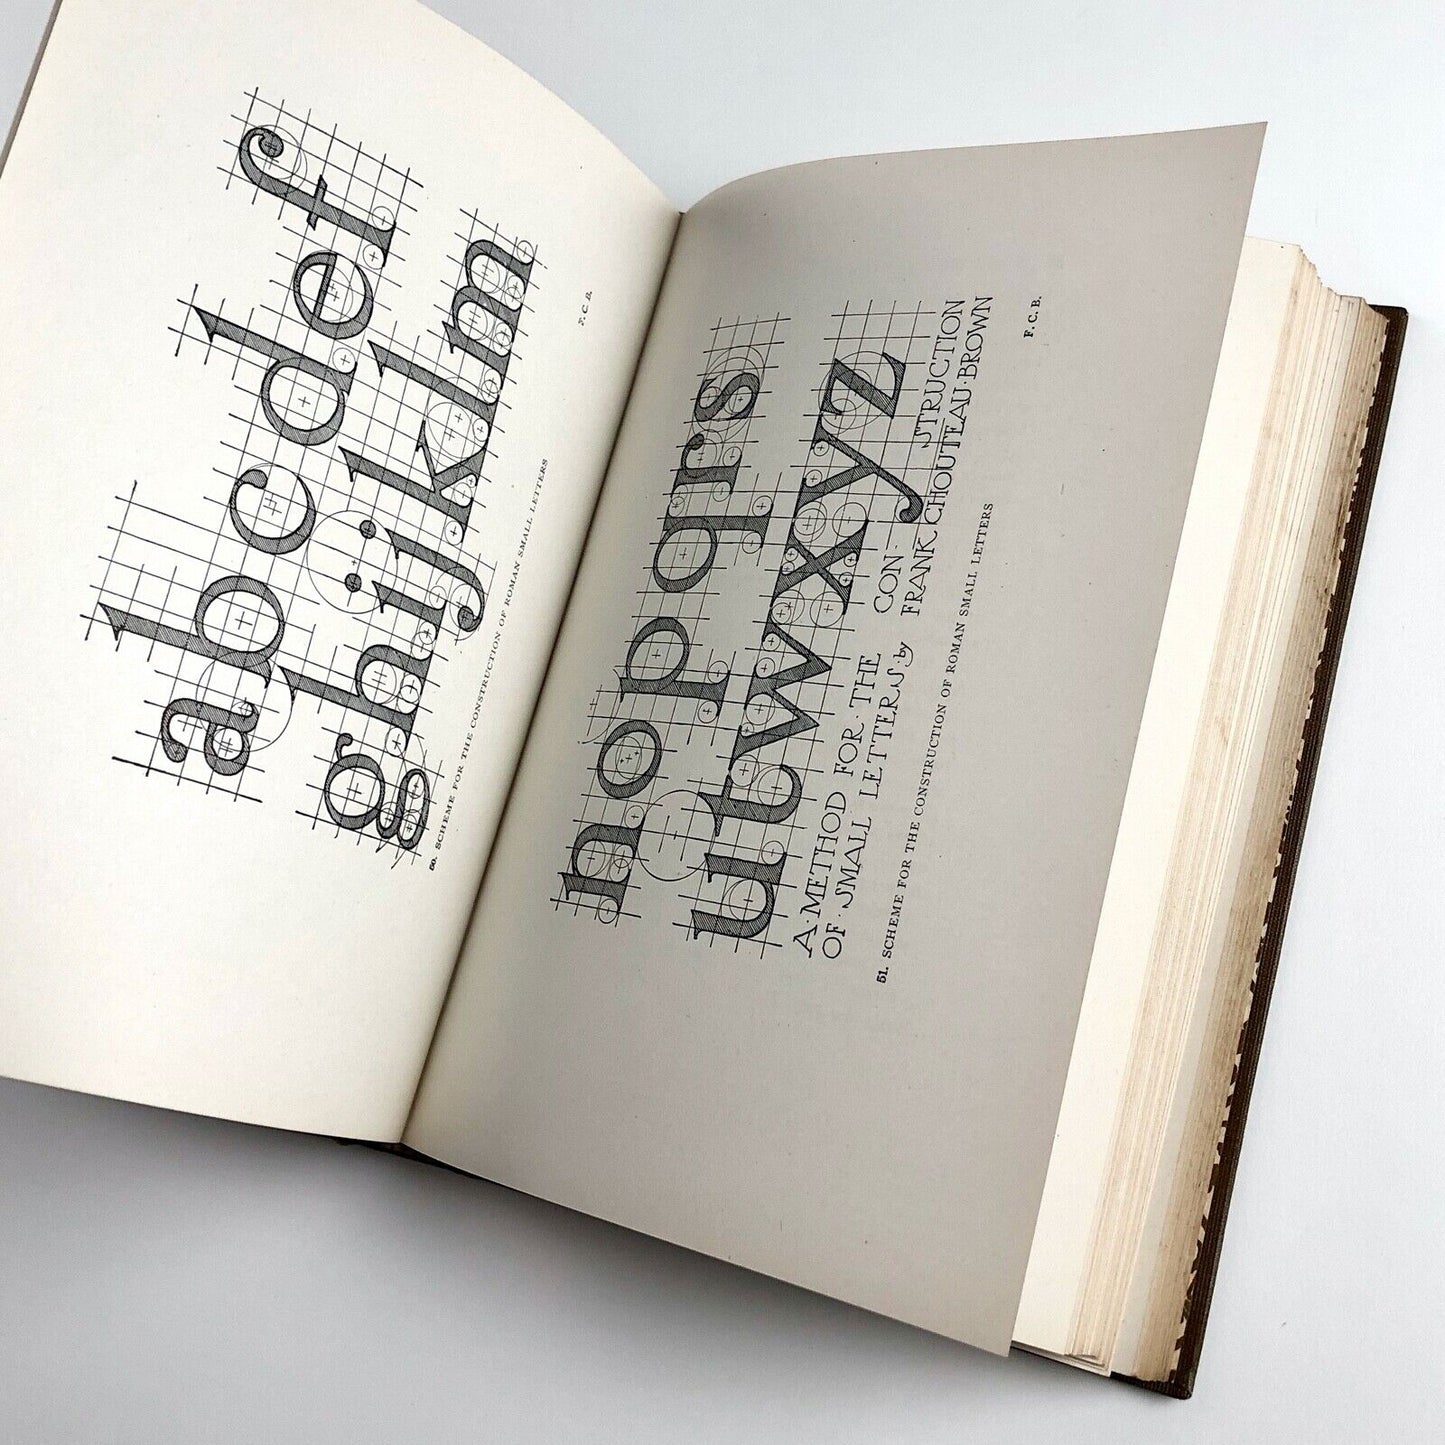 abcdef
ghijklm
F. C. B.
50. SCHEME FOR THE CONSTRUCTION OF ROMAN SMALL LETTERS
nopqrs
utwxyz
A·METHOD FOR·THE CON·STRUCTION
OF·SMALL LETTERS·by FRANK CHOUTEAU·BROWN
F. C. B.
51. SCHEME FOR THE CONSTRUCTION OF ROMAN SMALL LETTERS